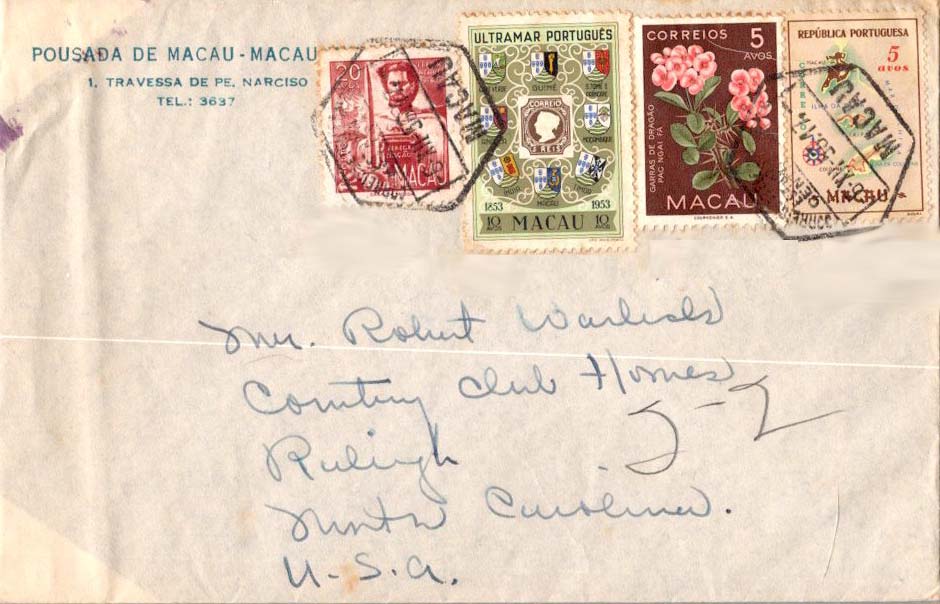 POUSADA DE MACAU - MACAU
1, TRAVESSA DE PE. NARCISO
TEL.: 3637
20
MACAU
ULTRAMAR PORTUGUÊS
GUINÉ
S. TOMÉ E PRÍNCIPE
CORREIO
5 REIS
MOÇAMBIQUE
INDIA
MACAU
TIMOR
1853 1953
10 AVOS MACAU 10 AVOS
CORREIOS 5
AVOS
GARRAS DE DRAGÃO
PAC NGAI FÁ
MACAU
COURVOISIER S.A.
REPÚBLICA PORTUGUESA
5
avos
MACAU
MACAU
MACAU
Mr. Robert
Country Club Homes
J-2
Raleigh
North Carolina.
U.S.A.